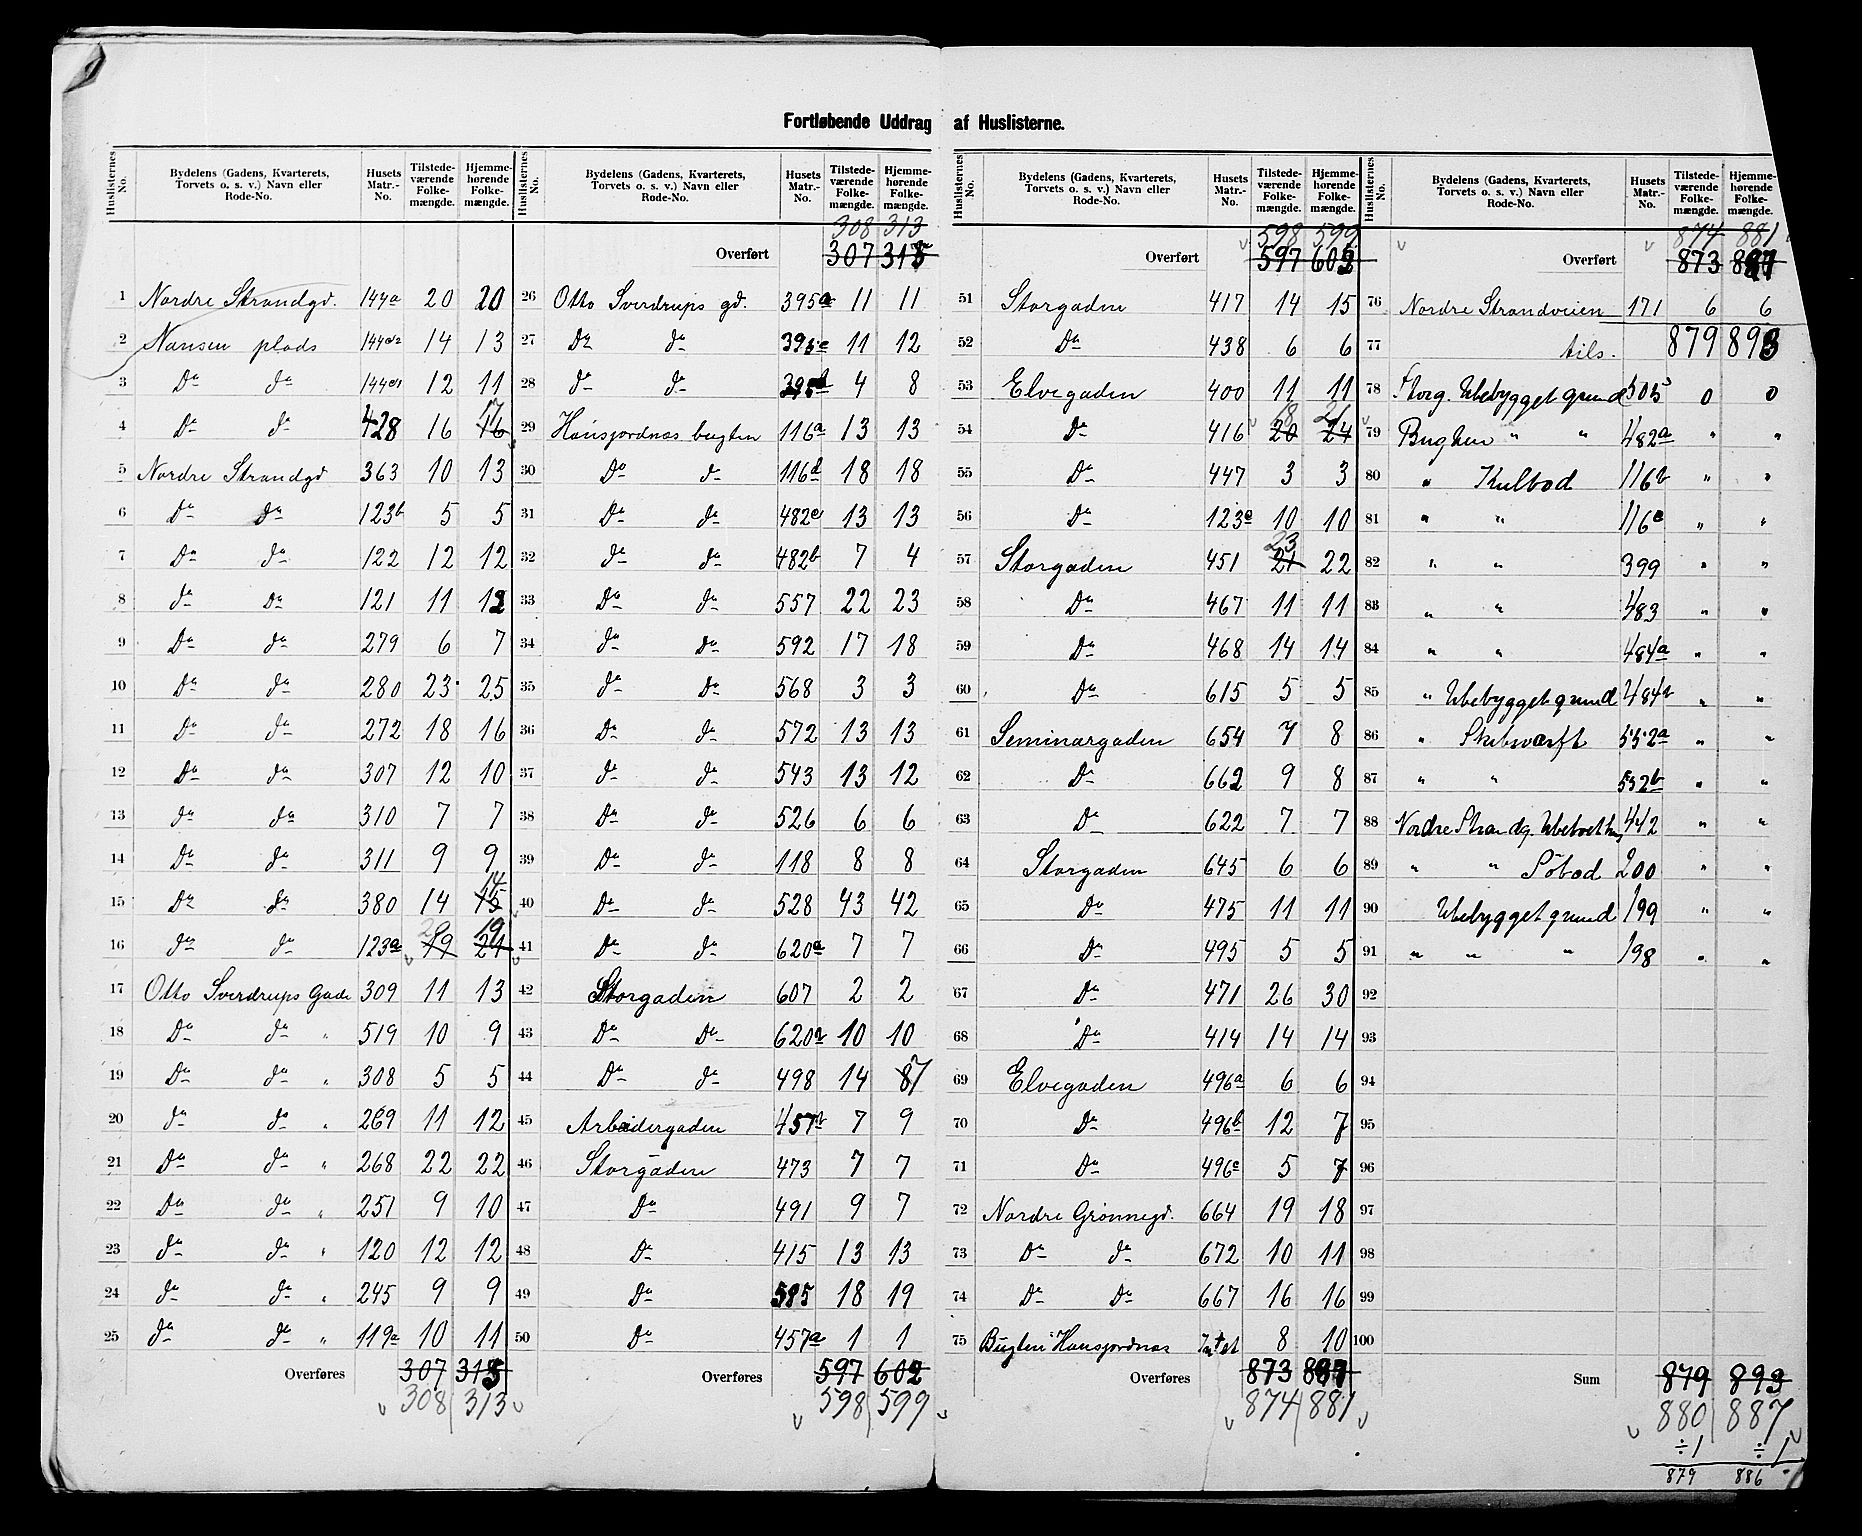 Fortløbende Uddrag af Huslisterne.
Huslisternes No. | Bydelens (Gadens, Kvarterets, Torvets o. s. v.) Navn eller Rode-No. | Husets Matr.-No. | Tilstede-værende Folke-mængde. | Hjemme-hørende Folke-mængde.
1 Nordre Strandgd. 144a 20 20
2 Nansen plads 14 13
3 Do do 12 11
4 Do do 428 16 16 17
5 Nordre Strandgd 363 10 13
6 Do do 123b 5 5
7 Do do 122 12 12
8 do Do 121 11 12
9 Do do 279 6 7
10 Do do 280 23 25
11 Do do 272 18 16
12 Do do 307 12 10
13 do do 310 7 7
14 Do do 311 9 9
15 Do do 380 14 15 14
16 do do 123a 19 20 21 19
17 Otto Sverdrups Gade 309 11 13
18 Do do " 519 10 9
19 Do do " 308 5 5
20 do do " 269 11 12
21 Do do " 268 22 22
22 Do do " 251 9 10
23 do do " 120 12 12
24 do do " 245 9 9
25 do do " 119a 10 11
Overføres 307 315
308 313
Huslisternes No. | Bydelens (Gadens, Kvarterets, Torvets o. s. v.) Navn eller Rode-No. | Husets Matr.-No. | Tilstede-værende Folke-mængde. | Hjemme-hørende Folke-mængde.
308 313
Overført 307 315
26 Otto Sverdrups gd. 395a 11 11
27 Do do 395c 11 12
28 do do 395d 4 8
29 Hansjordnæs bugten 116a 13 13
30 Do do 116d 18 18
31 Do do 482c 13 13
32 do do 482b 7 4
33 Do do 557 22 23
34 do Do 592 17 18
35 do Do 568 3 3
36 Do do 572 13 13
37 do do 543 13 12
38 Do do 526 6 6
39 Do do 118 8 8
40 Do do 528 43 42
41 Do do 620a 7 7
42 Storgaden 607 2 2
43 Do Do 620a 10 10
44 Do do 498 14 7
45 Arbeidergaden 457b 7 9
46 Storgaden 473 7 7
47 Do 491 9 7
48 Do 415 13 13
49 Do 585 18 19
50 Do 457a 1 1
Overføres 597 602
598 599
Huslisternes No. | Bydelens (Gadens, Kvarterets, Torvets o. s. v.) Navn eller Rode-No. | Husets Matr.-No. | Tilstede-værende Folke-mængde. | Hjemme-hørende Folke-mængde.
598 599
Overført 597 602
51 Storgaden 417 14 15
52 Do 438 6 6
53 Elvegaden 400 11 11
54 Do 416 20 18 24 21
55 Do 447 3 3
56 Do 123e 10 10
57 Storgaden 451 21 23 22
58 Do 467 11 11
59 Do 468 14 14
60 Do 615 5 5
61 Seminargaden 654 7 8
62 Do 662 9 8
63 Do 622 7 7
64 Storgaden 645 6 6
65 Do 475 11 11
66 Do 495 5 5
67 Do 471 26 30
68 Do 414 14 14
69 Elvegaden 496a 6 6
70 Do 496b 12 7
71 Do 496c 5 7
72 Nordre Grønnegd. 664 19 18
73 Do do 672 10 11
74 Do Do 667 16 16
75 Bugten Hansjordnæs Intet 8 10
Overføres 873
874 881
Huslisternes No. | Bydelens (Gadens, Kvarterets, Torvets o. s. v.) Navn eller Rode-No. | Husets Matr.-No. | Tilstede-værende Folke-mængde. | Hjemme-hørende Folke-mængde.
874 881
Overført 873
76 Nordre Strandveien 171 6 6
77 tils. 879 893
78 Storg. Ubebygget grund 505 0 0
79 Bugten " " 482a " "
80 " Kulbod 116b " "
81 " " 116c " "
82 " " 399 " "
83 " " 483 " "
84 " " 484a " "
85 " Ubebygget grund 484b " "
86 " Skibsværft 552a " "
87 " " 552b " "
88 Nordre Strandg. Ubeboet hus 442 " "
89 " " Søbod 200 " "
90 Ubebygget grund 199 " "
91 " " " 198 " "
92
93
94
95
96
97
98
99
100
Sum 879 893
880 887
÷1 ÷1
879 886